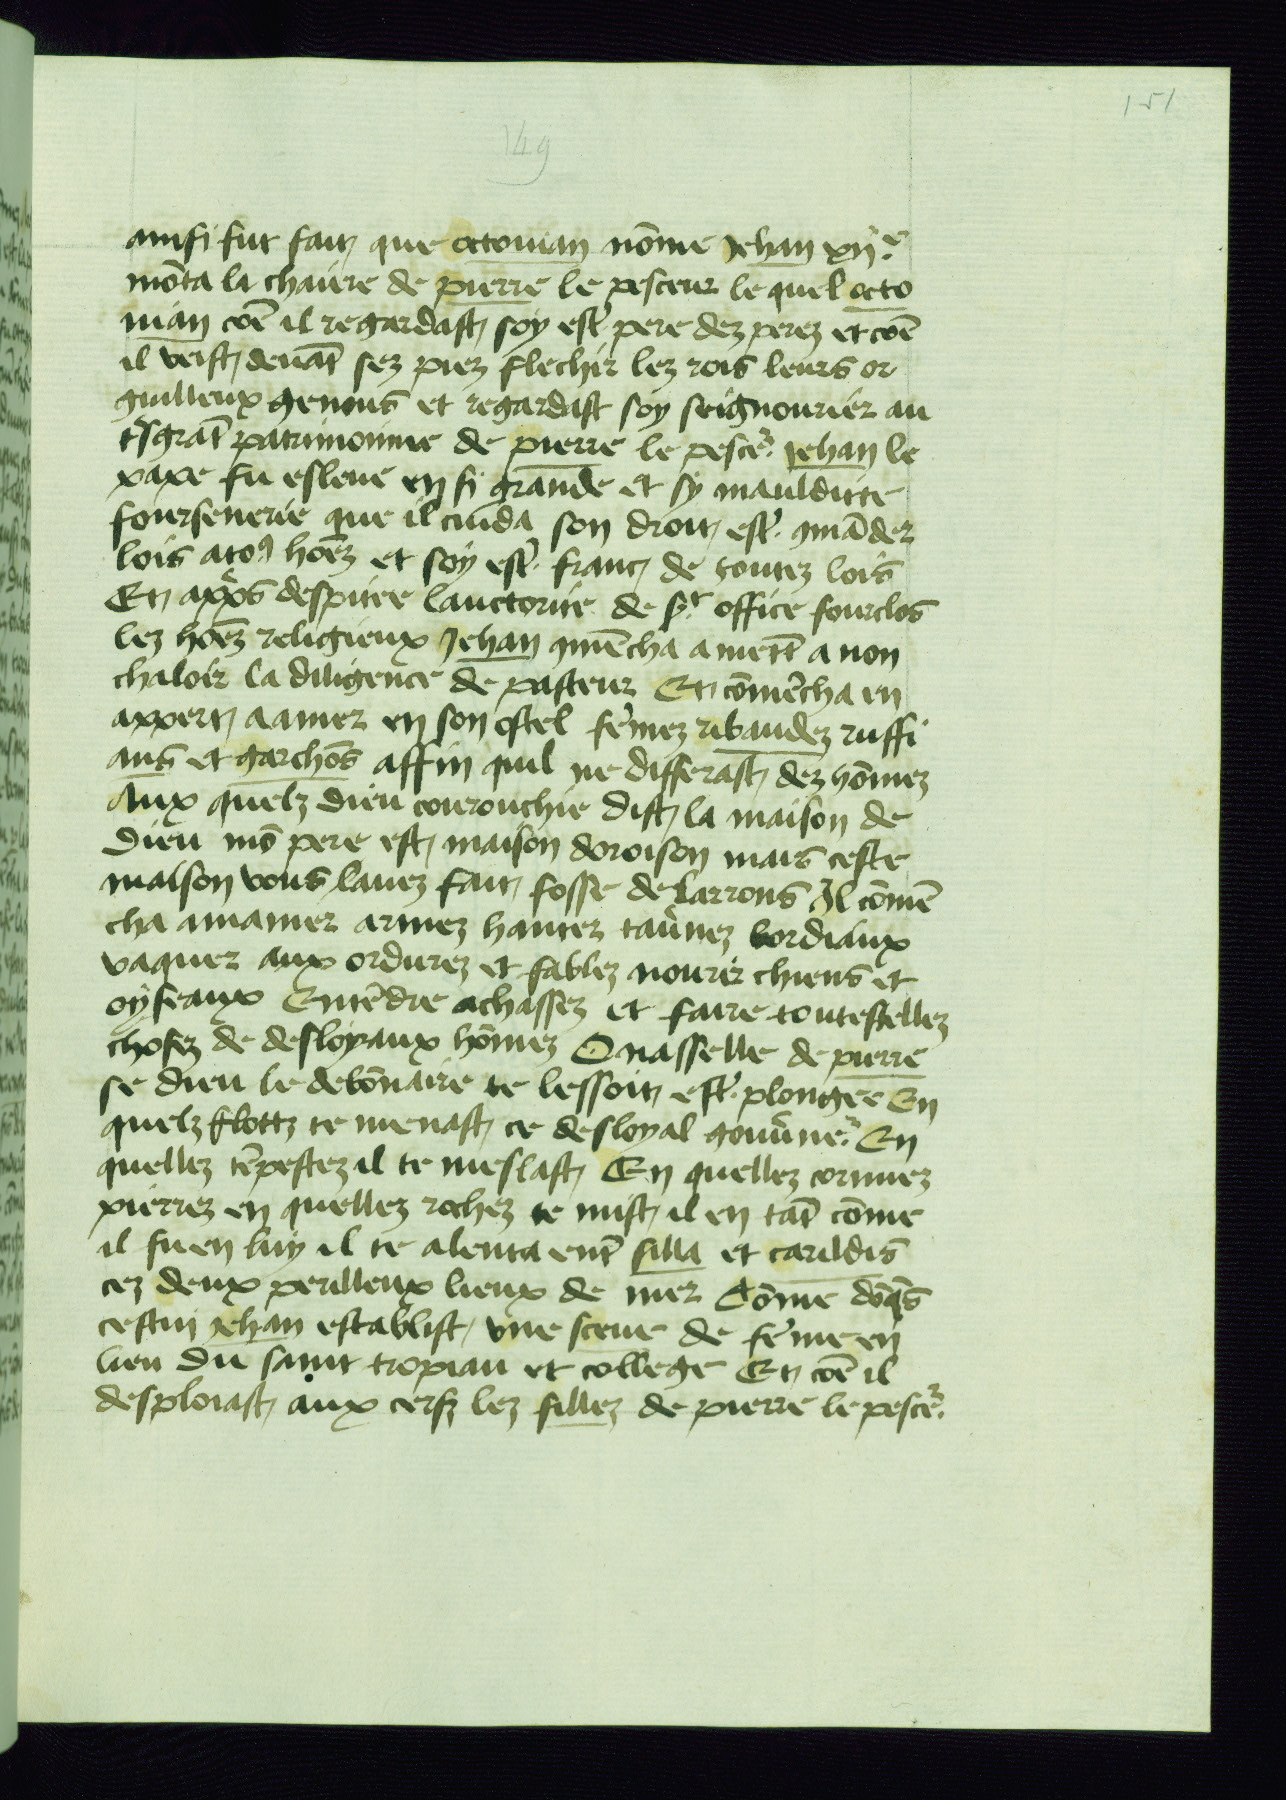 151
149
ainsi fut fait que octouian nōme Jehan xije
mōta la chaiere de pierre le pesceur le quel octo
uian cōe il regardast soy estr̄ pere dez perez et cōe
il veist deuāt sez piez flechir lez rois leurs or
guilleux genous et regardast soy seignourier au
trsgrāt patrimoinne de pierre le pescer̄ Jehan le
pape fu esleue en si grande et sy mauldicte
foursenerie que il cuida son droit estr̄ 9māder
lois a to9 hōez et soy estr̄ franc de toutez lois
Et apprs despitee lauctorite de sr office fourclos
lez hōez religieux Jehan 9mēcha a mettr̄ a non
chaloir la diligence de pasteur Et cōmēcha en
appert a amer en son ostel fēmez ribaudez ruffi
ans et garchōs affin quil ne differast dez hōmez
Aux quelz dieu courouchie dist la maison de
dieu mō pere est maison doroison mais ceste
maison vous lauez fait fosse de larrons Il cōmē
cha a manier armez hanter tau̓nez bordiaux
vaquer aux ordurez et fablez nourir chiens et
oyseaux Entēdre a chassez et faire toutestellez
chosez de desloyaux hōmez O nasselle de pierre
se dieu le debōnaire te lessoit estr̄ plongee En
quelz flottz te menast ce desloyal gouu̓ner̄ En
quellez tēpestez il te meslast En quellez cornuez
pierrez en quellez rochez te mist il en tāt cōme
il fu en luy il te alenta entr̄ silla et carildis
cez deux perilleux lieux de mer Cōme dōqs
cestui jehan establist vne scene de fēme en
lieu du saint tropiau et college Et cōe il
desploiast aux cerfz lez fillez de pierre le pescer̄